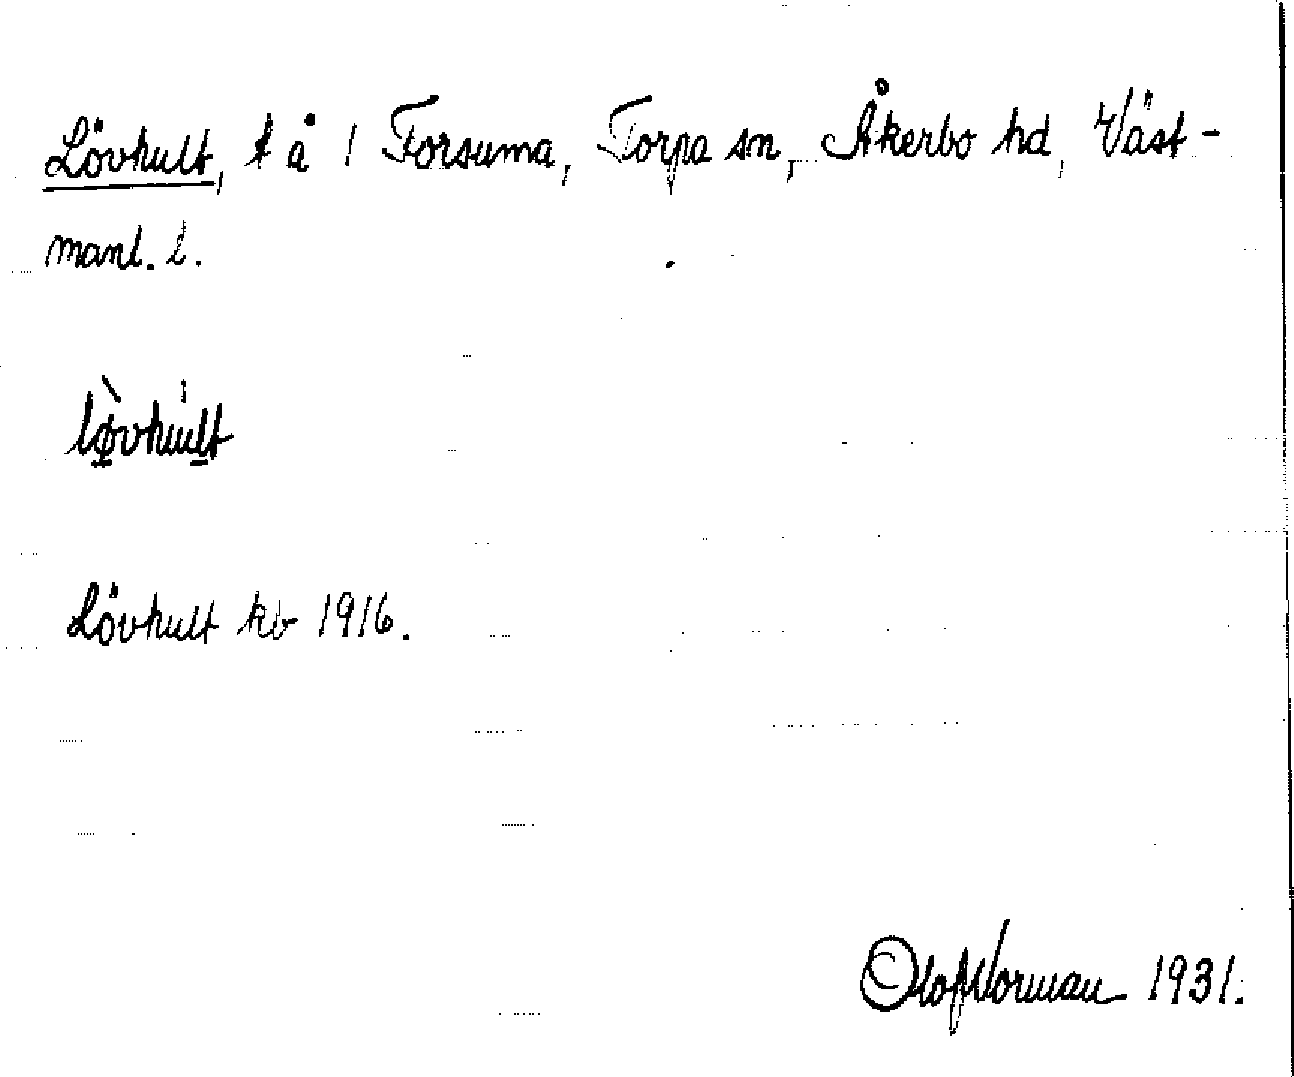 Lövhult, t å 1 Forsuma, Torpa sn, Åkerbo hd, Väst-
manl. l.
lø̀vhu̍lt
Lövhult kb 1916.
Olof Norman 1931.